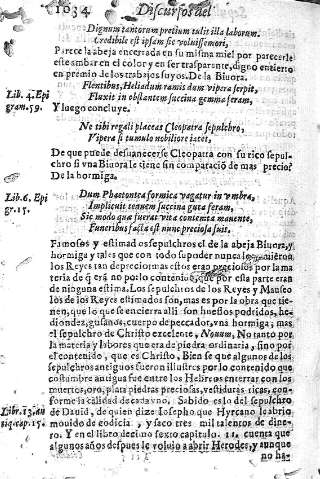 1034 Discursos del
Dignum tantorum pretium tulit illa laborum.
Credibile est ipsam sic voluisse mori,
Parece la abeja encerrada en su misma miel por parecerle
este ambar en el color y en ser transparente, digno entierro
en premio de los trabajos suyos. De la Biuora.
Lib. 4. Epi
gram. 59.
Flentibus, Heliadum ramis dum vipera serpit,
Fluxit in obstantem succina gemma feram,
Y luego concluye.
Ne tibi regali placeas Cleopatra sepulchro,
Vipera si tumulo nobiliore iacet,
De que puede desuanecerse Cleopatra con su rico sepul-
chro si vna Biuora le tiene sin comparació de mas precio?
De la hormiga.
Lib. 6. Epi
gr. 15.
Dum Phaetontea formica vagatur in vmbra,
Implicuit tenuem succina guta feram,
Sic modo que fuerat vita contenta manente,
Funeribus facta est nunc preciosa suis.
Famosos y estimados sepulchros el de la abeja Biuora, y
hormiga y tales que con todo su poder nunca los
los Reyes tan de preciosos estos eran preciosos por la ma
teria de q̃ erã no por lo contenido, que por esta parte eran
de ninguna estima. Los sepulchros de los Reyes y Mauseo
los de los Reyes estimados son, mas es por la obra que tie-
nen, que lo que se encierra alli son huessos podridos, he-
diondez, gusanos, cuerpo de peccador, vna hormiga; mas
el sepulchro de Christo excelente, Nouum, No tanto por
la materia y labores que era de piedra ordinaria, sino por
el contenido, que es Christo, Bien se que algunos de los
sepulchros antiguos fueron illustres por lo contenido que
costumbre antigua fue entre los Hebreos encerrar con los
muertos, oro, plata piedras preciosas, vestiduras ricas, con-
forme la calidad de cada vno. Sabido es lo del sepulchro
Libr. 13. an
tiq. cap. 15.
de Dauid, de quien dize Iosepho que Hyrcano le abrio
mouido de codicia, y saco tres mil talentos de dine-
ro. Y en el libro decimo sexto capitulo. 11. cuenta que
algunos años despues le boluio a abrir Herodes, y aunque
no ha-